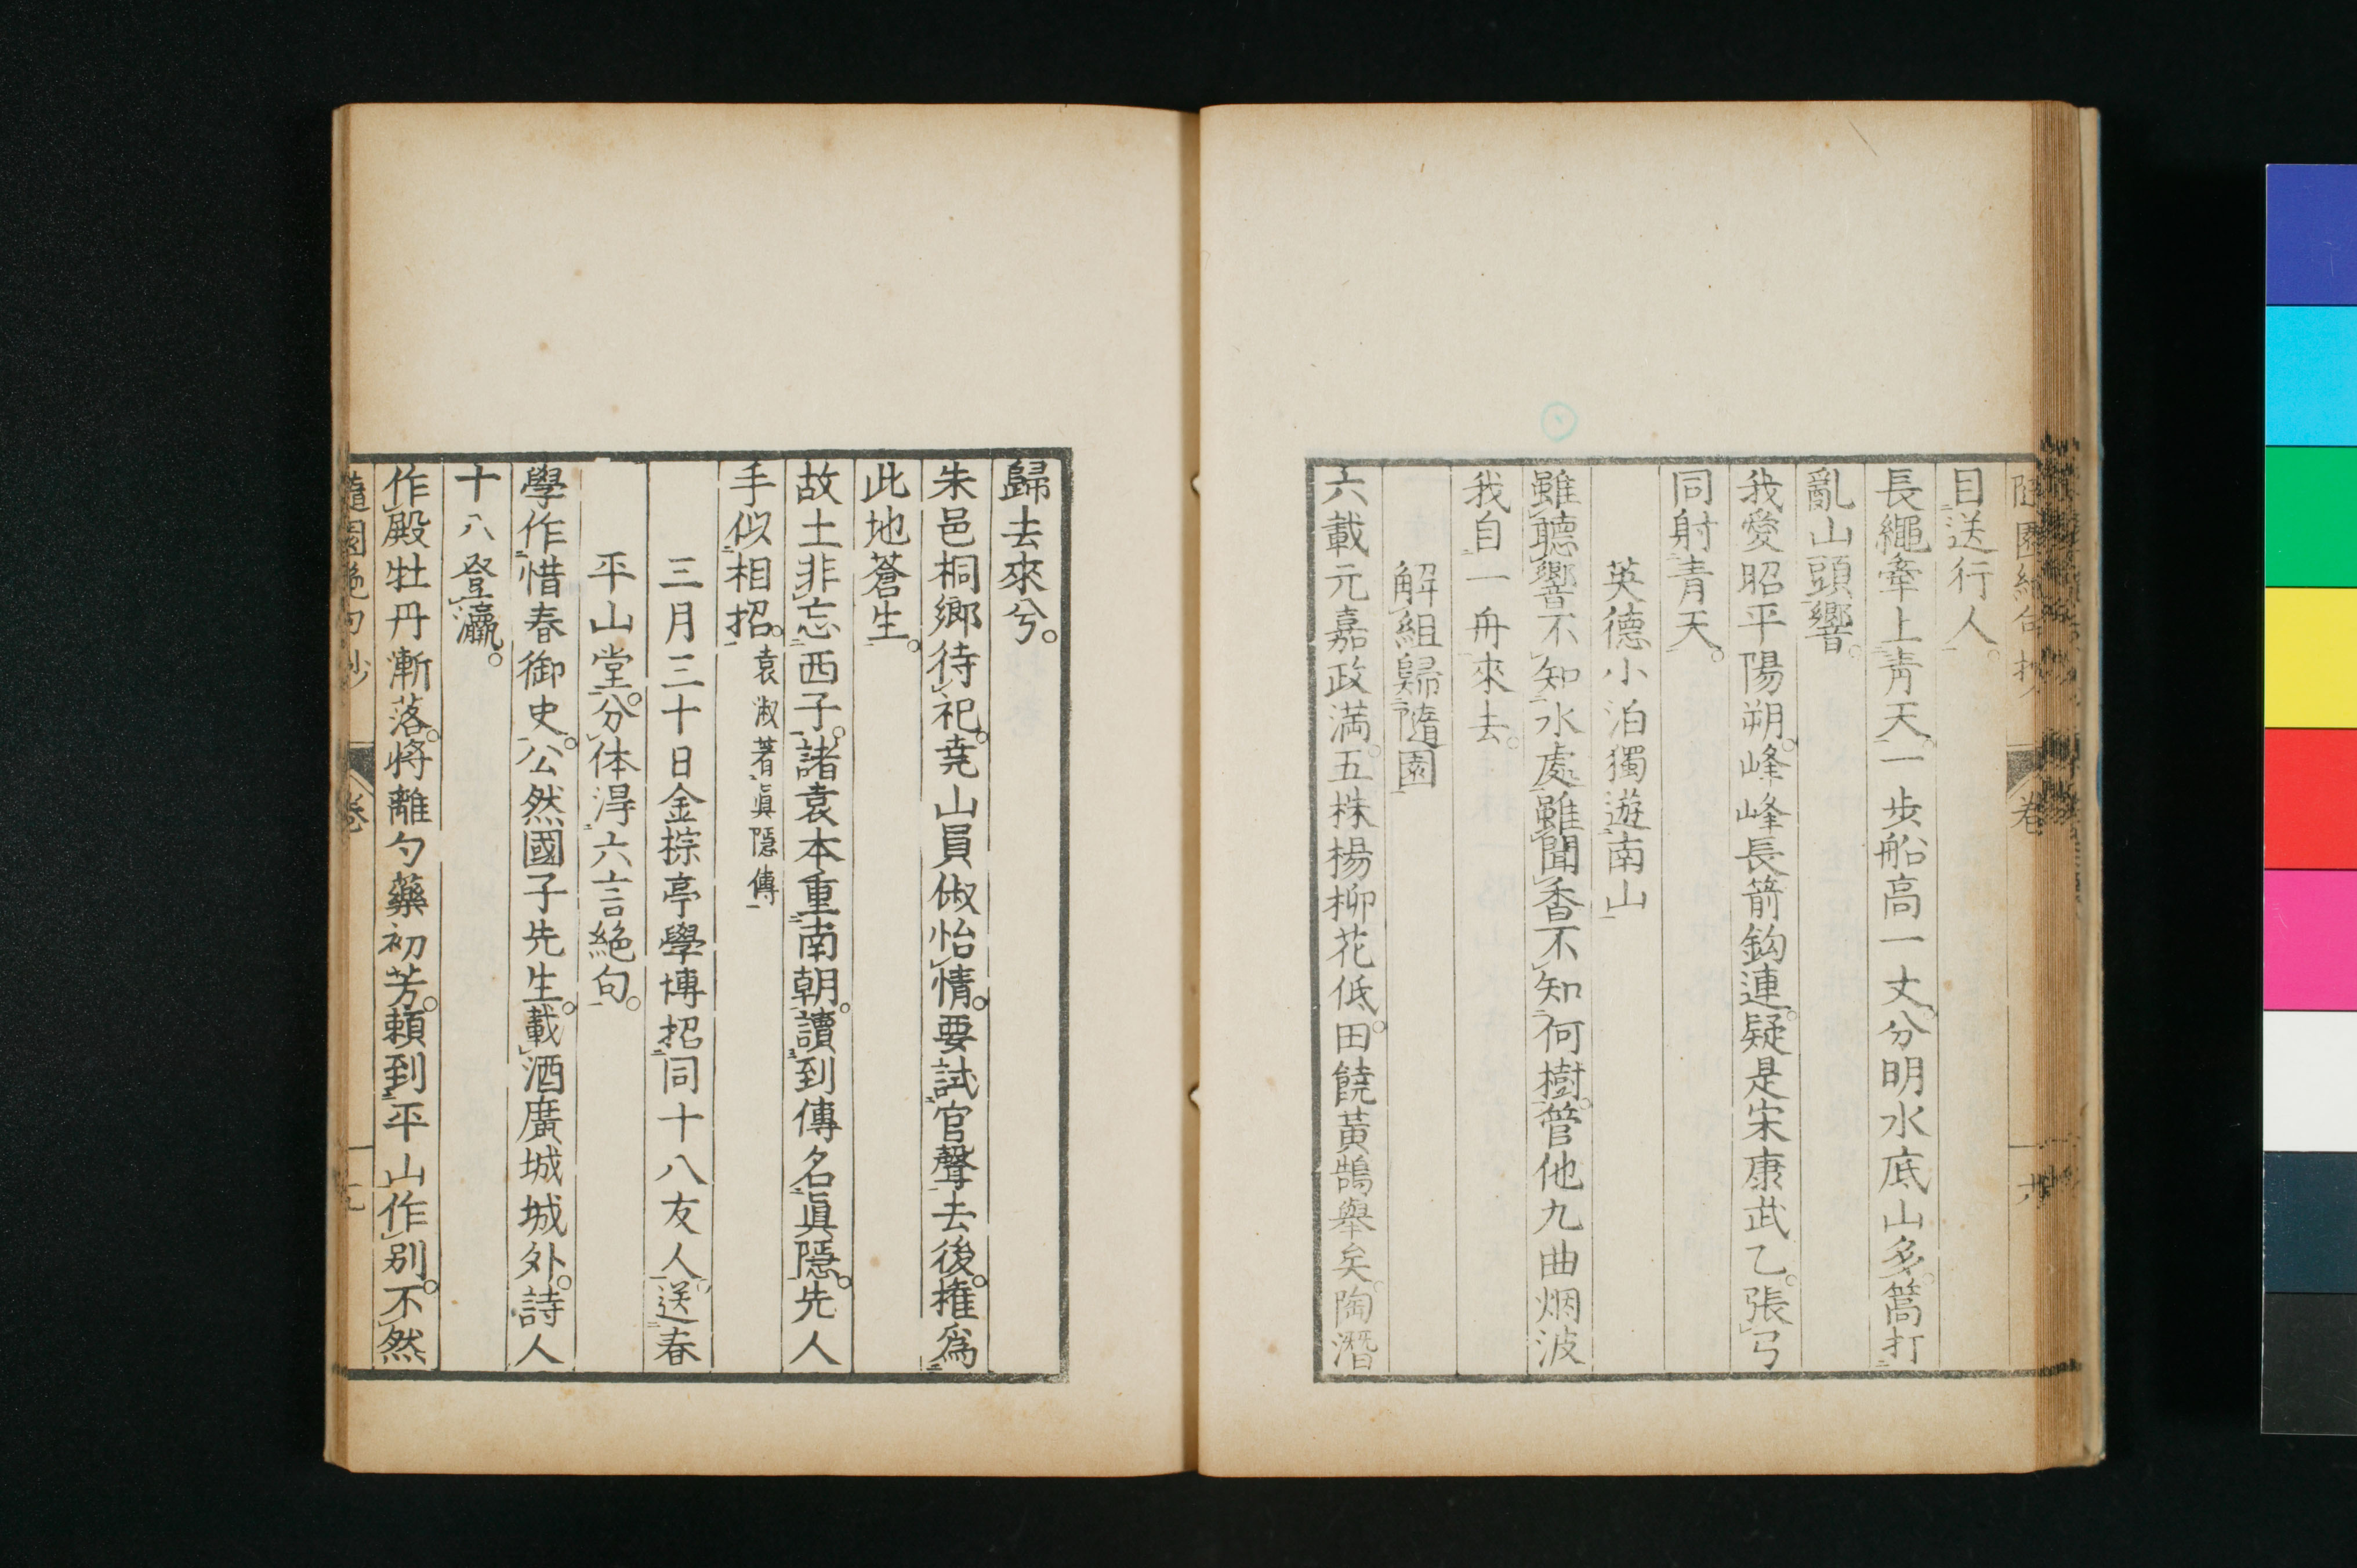 目送行人。
長繩牽上青天。一歩船高一丈。分明水底山多。篙打
亂山頭響。
我愛昭平陽朔。峰峰長箭鈎連。疑是宋康武乙。張弓
同射青天。
英德小泊獨遊南山
雖聽響不知水處。雖聞香不知何樹。管他九曲烟波
我自一舟來去。
解組歸隨園
六載元嘉政満。五株楊柳花低。田饒黃鵠舉矣。陶潛
歸去來兮。
朱邑桐鄉待祀。尭山員俶怡情。要試官聲去後。擁爲
此地蒼生。
故土非忘西子。諸袁本重南朝。讀到傳名眞隱。先人
手似相招。袁淑著眞隱傳
三月三十日金棕亭學博招同十八友人送春
平山堂。分体淂六言絶句。
學作惜春御史。公然國子先生。載酒廣城城外。詩人
十八登瀛。
作殿牡丹漸落。將離勺藥初芳。頼到平山作別。不然
隨園絶句抄 卷